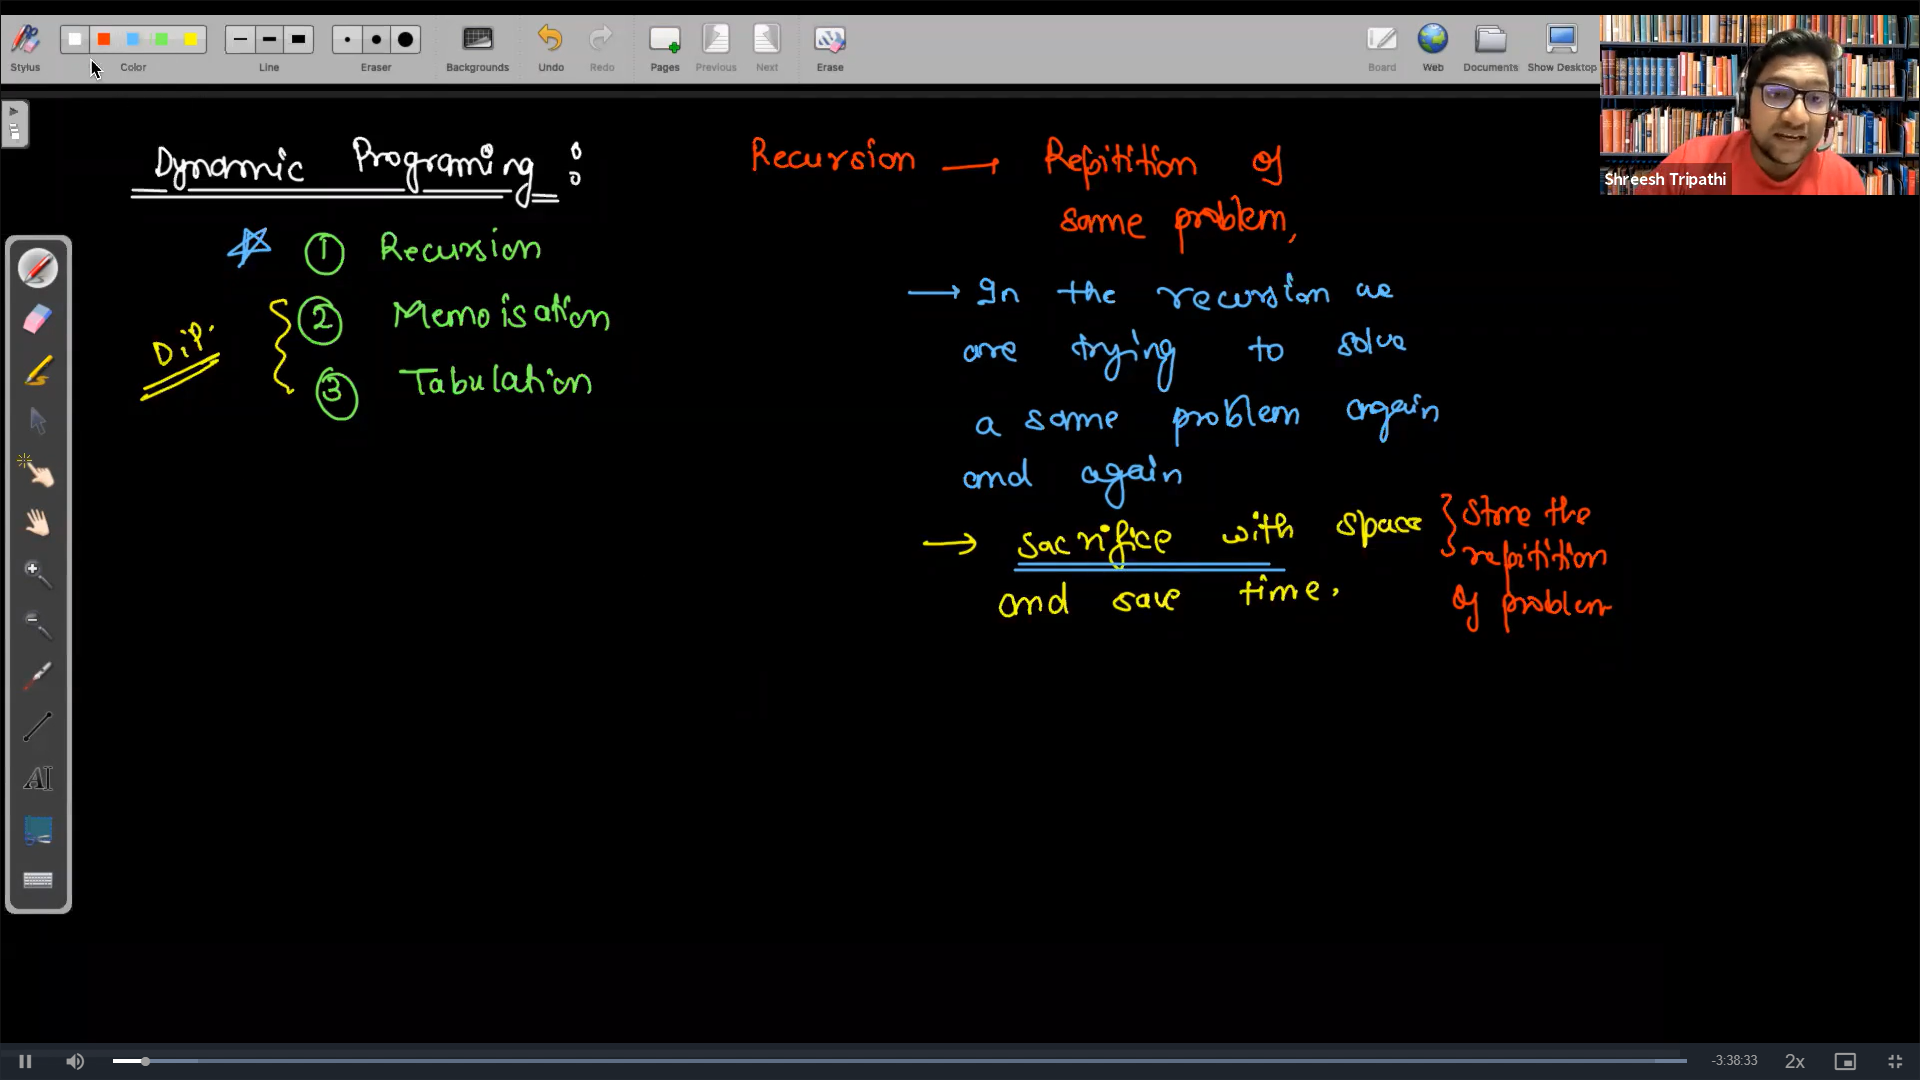 Stylus
Color
Line
Eraser
Backgrounds
Undo
Redo
Pages
Previous
Next
Erase
Board
Web
Documents
Show Desktop
Shreesh Tripathi
Dynamic Programing :
① Recursion
② Memoisation
③ Tabulation
D.P.
Recursion → Repitition of
same problem,
→ In the recursion we
are trying to solve
a same problem again
and again
→ sacrifice with space
and save time.
} Store the
repitition
of problem
AI
-3:38:33
2x